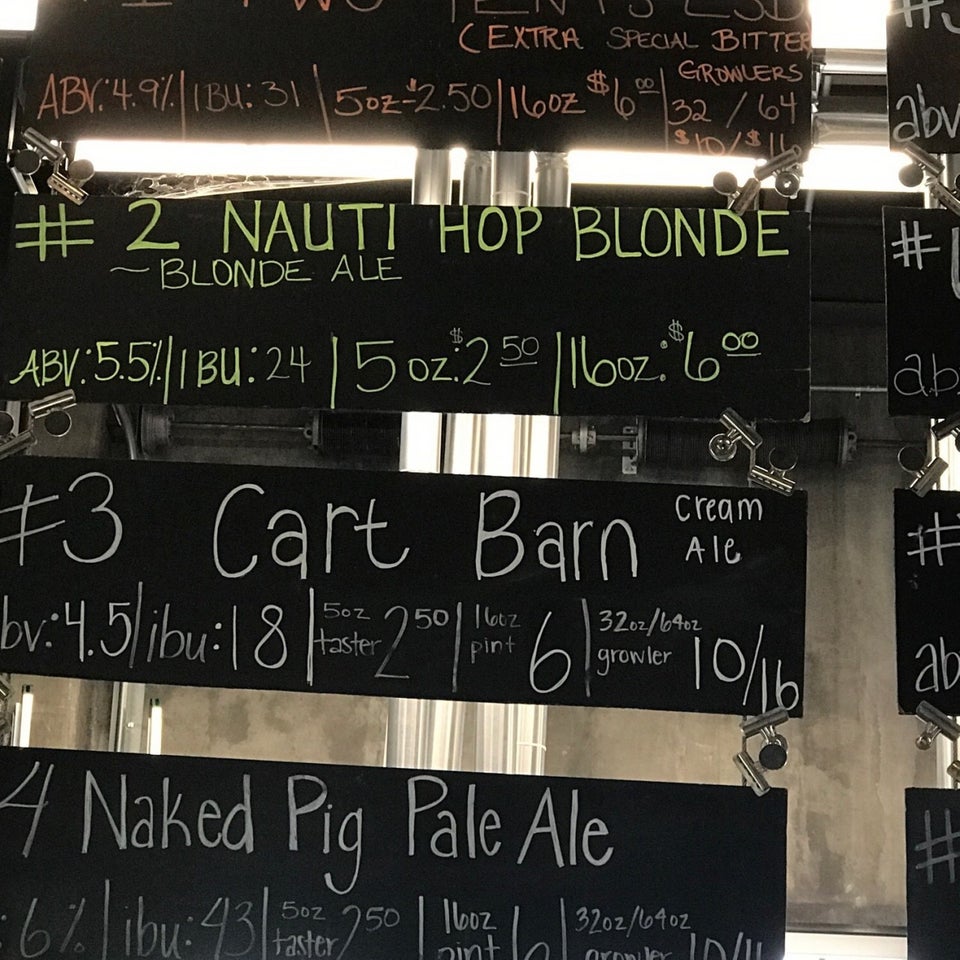 (EXTRA SPECIAL BITTER
ABV:4.9% | IBU: 31 | 5oz-$2.50 | 16oz $6 00 | GROWLERS
32 / 64
$10/$16
# 2 NAUTI HOP BLONDE
~BLONDE ALE
ABV:5.5% | IBU:24 | 5oz:$2 50 | 16oz:$6 00
#3 Cart Barn Cream
Ale
bv:4.5 | ibu:18 | 5oz taster 2 50 | 16oz pint 6 | 32oz/64oz growler 10/16
4 Naked Pig Pale Ale
:6% | ibu:43 | 5oz taster 2 50 | 16oz pint 6 | 32oz/64oz growler 10/1
abv
#
ab
#
ab
#